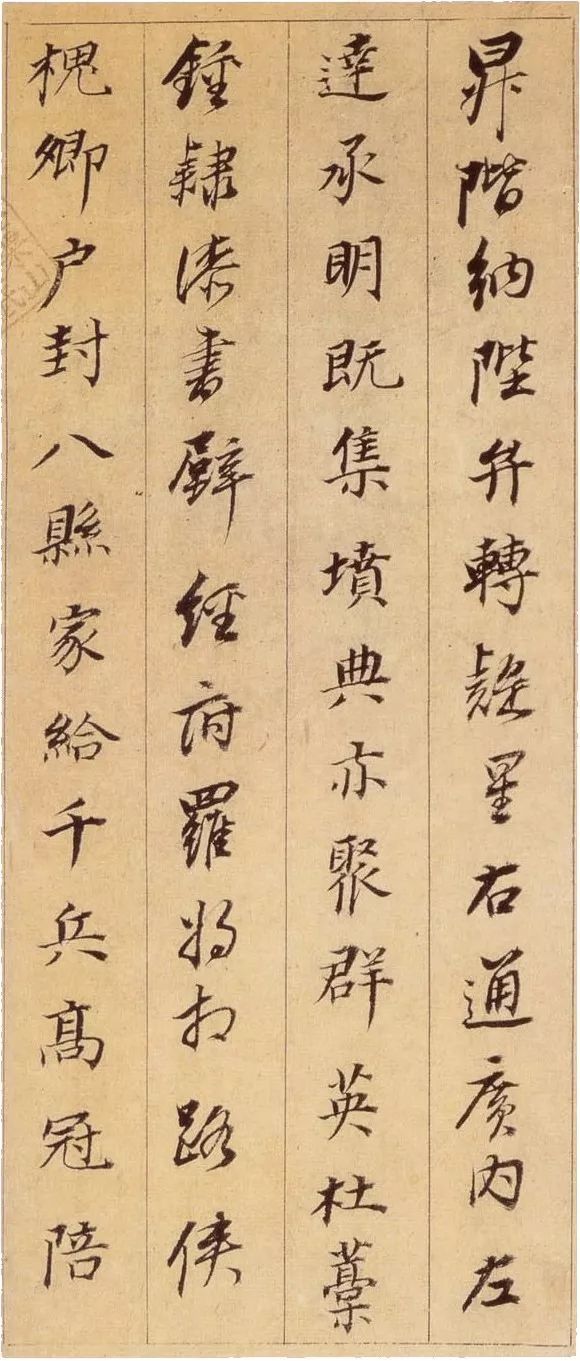 昇階納陛弁轉疑星右通廣内左
達承明既集墳典亦聚群英杜藁
鍾隸漆書壁經府羅將相路俠
槐卿户封八縣家給千兵高冠陪